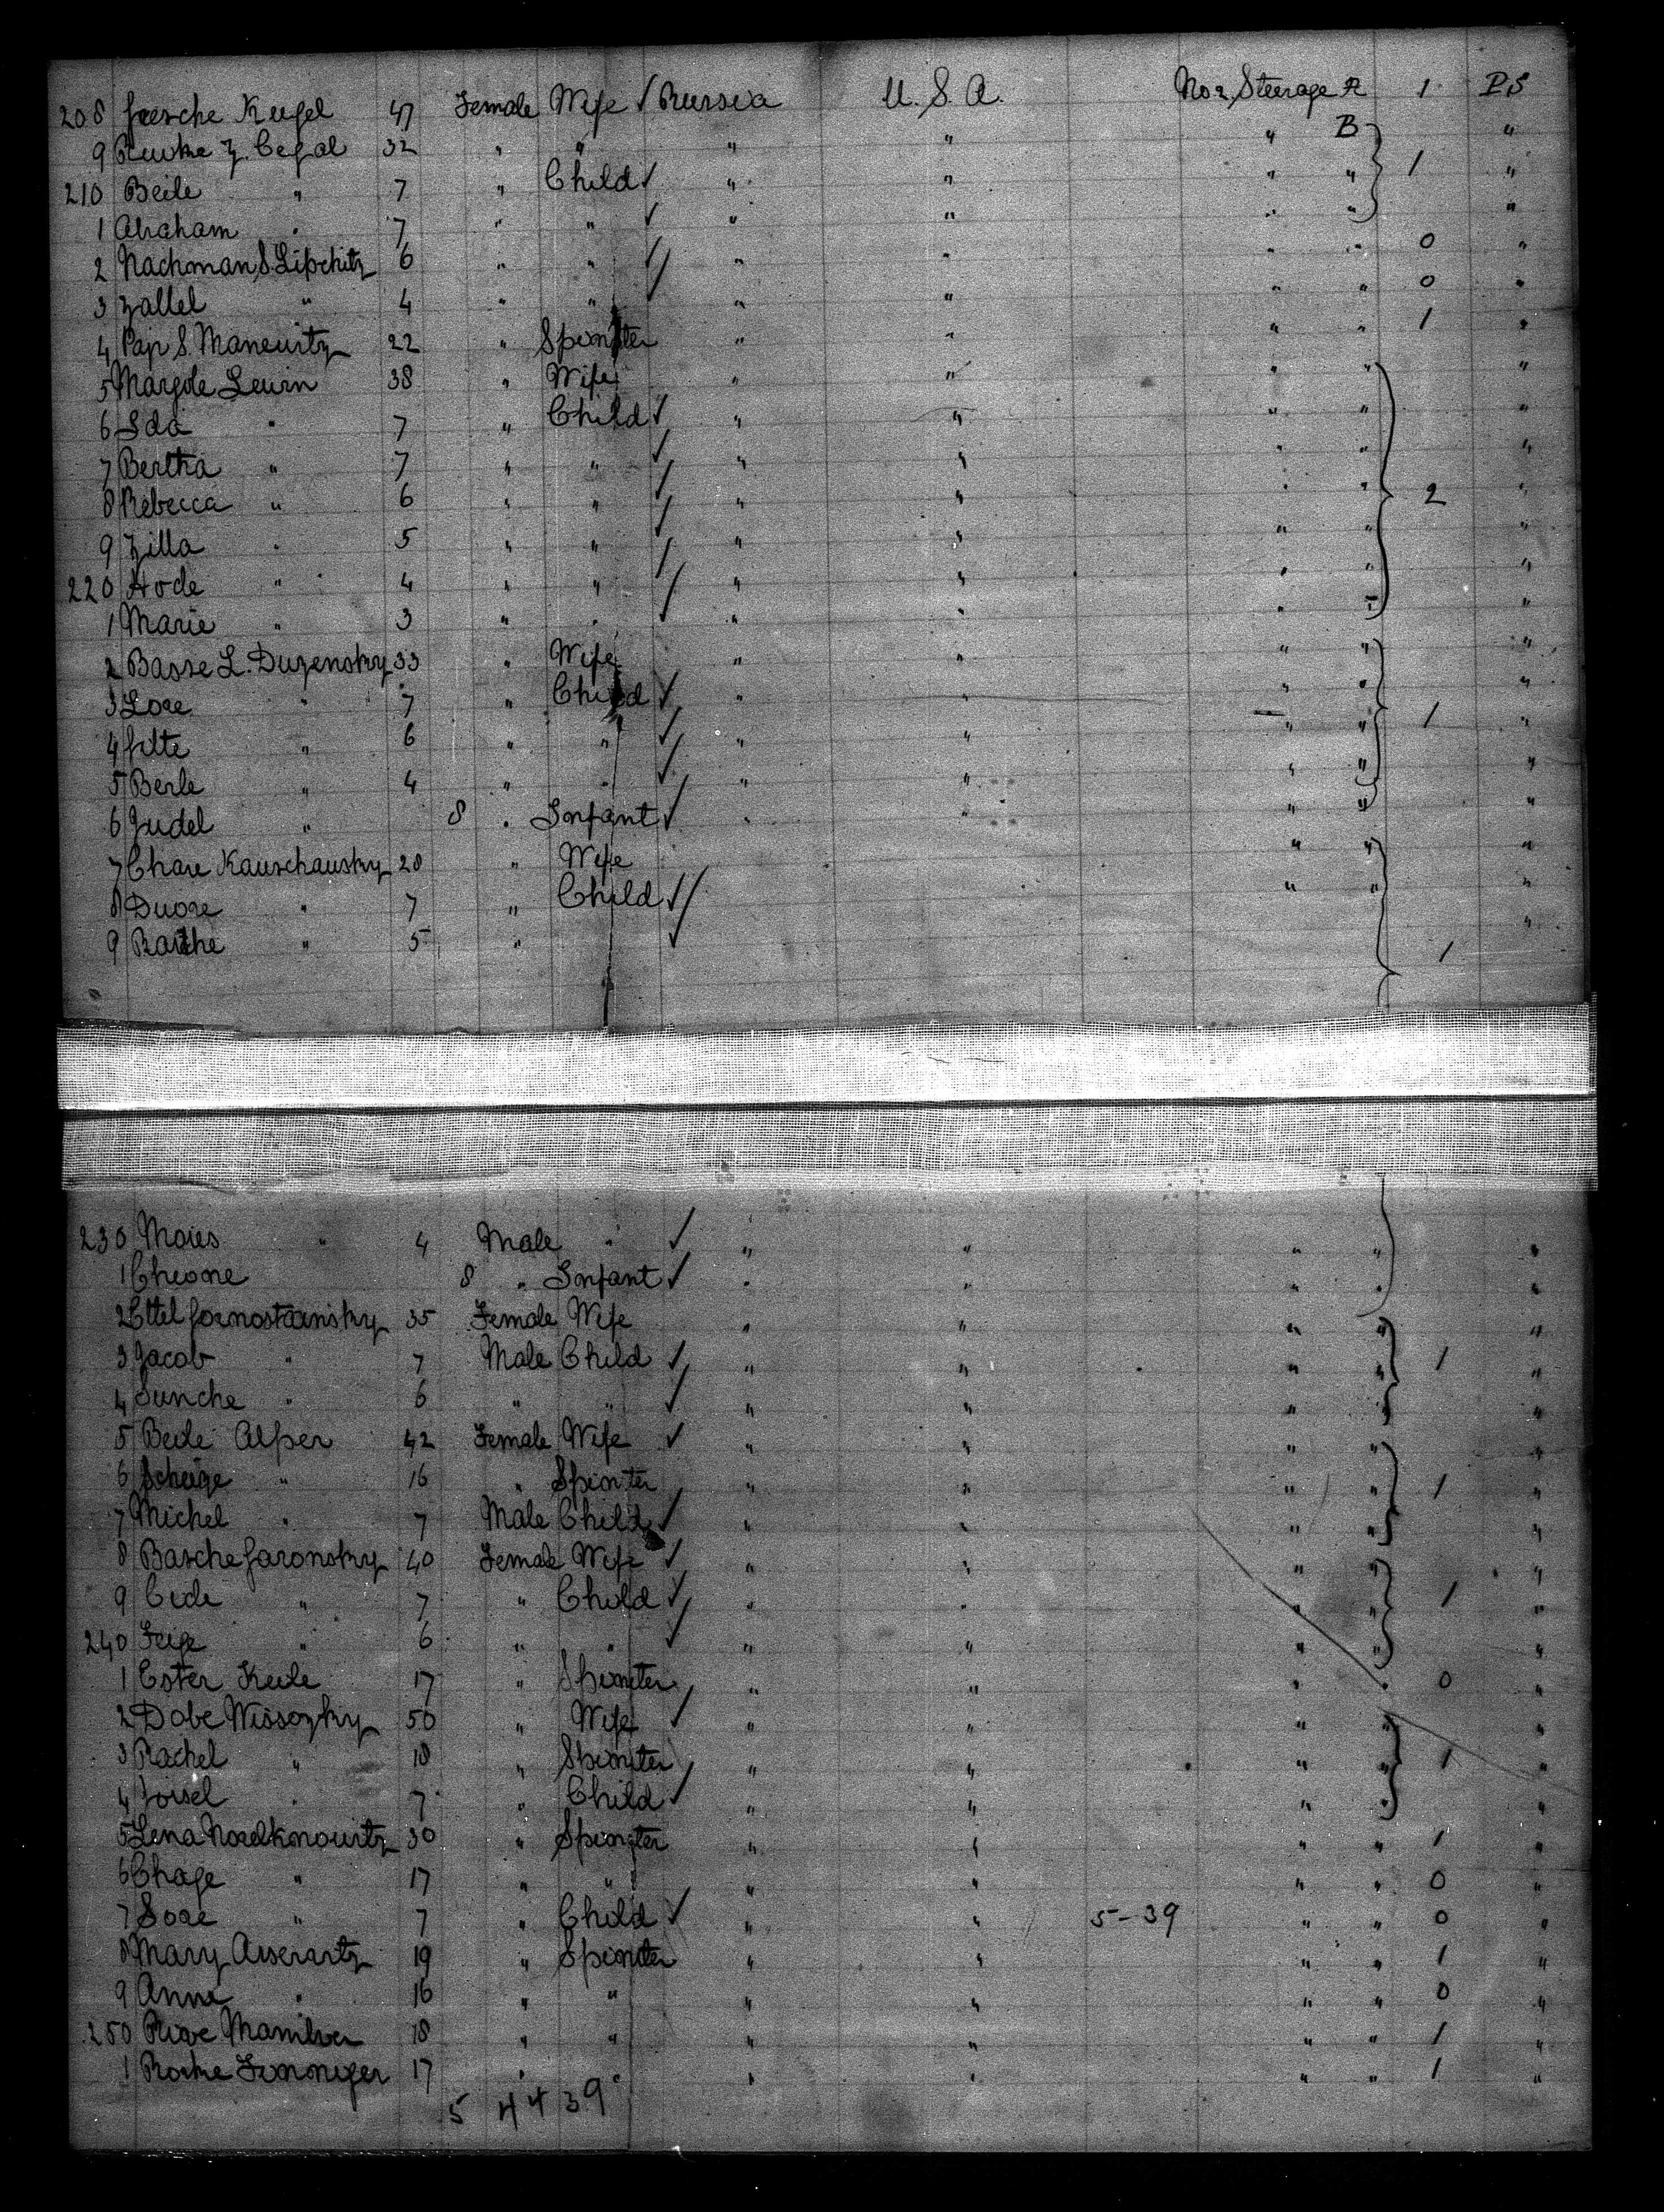 208 Kugel 47 Female Wife ✓ Russia U. S. A. No 2, Steerage A 1 PS
9 Cegal 32 " " " " " B "
210 Beile " 7 " Child ✓ " " " " 1 "
1 Abraham " 7 " " ✓ " " " " "
2 Nachman S. Lipschitz 6 " " ✓ " " " " 0 "
3 Zallel " 4 " " ✓ " " " " 0 "
4 S. Maneuitz 22 " Spinster " " " " 1 "
5 Margole Leuin 38 " Wife " " " " "
6 Ida " 7 " Child ✓ " " " " "
7 Bertha " 7 " " ✓ " " " " "
8 Rebecca " 6 " " ✓ " " " " 2 "
9 Zilla " 5 " " ✓ " " " " "
220 Hode " 4 " " ✓ " " " " "
1 Marie " 3 " " ✓ " " " " "
2 Basse L. Duzensky 33 " Wife " " " " "
3 " 7 " Child ✓ " " " " "
4 " 6 " " ✓ " " " " 1 "
5 Berle " 4 " " ✓ " " " " "
6 Judel " 8 " Infant ✓ " " " " "
7 Kauschausky 28 " Wife " " "
8 Duore " 7 " Child ✓ " " "
9 " 5 " ✓ 1 "
230 Moses " 4 Male " ✓ " " " " "
1 8 " Infant ✓ " " " " "
2 Ettel 35 Female Wife " " " " "
3 Jacob " 7 Male Child ✓ " " " " 1 "
4 Sunche " 6 " " ✓ " " " " "
5 Beile Alper 42 Female Wife ✓ " " " " "
6 " 16 " Spinster " " " " 1 "
7 Michel " 7 Male Child ✓ " " " " "
8 Basche 40 Female Wife ✓ " " " " "
9 " 7 " Child ✓ " " " " 1 "
240 Feige " 6 " " ✓ " " " " "
1 Ester Keile 17 " Spinster " " " " 0 "
2 Dobe Wissozky 50 " Wife ✓ " " " " "
3 Rachel " 18 " Spinster " " " " 1 "
4 " 7 " Child ✓ " " " " "
5 Lena 30 " Spinster " " " " 1 "
6 " 17 " " " " " " 0 "
7 Sore " 7 " Child ✓ " " 5-39 " " 0 "
8 Mary 19 " Spinster " " " " 1 "
9 Anna " 16 " " " " " " 0 "
250 18 " " " " " " 1 "
1 17 " " " " " 1 "
5 4 4 39